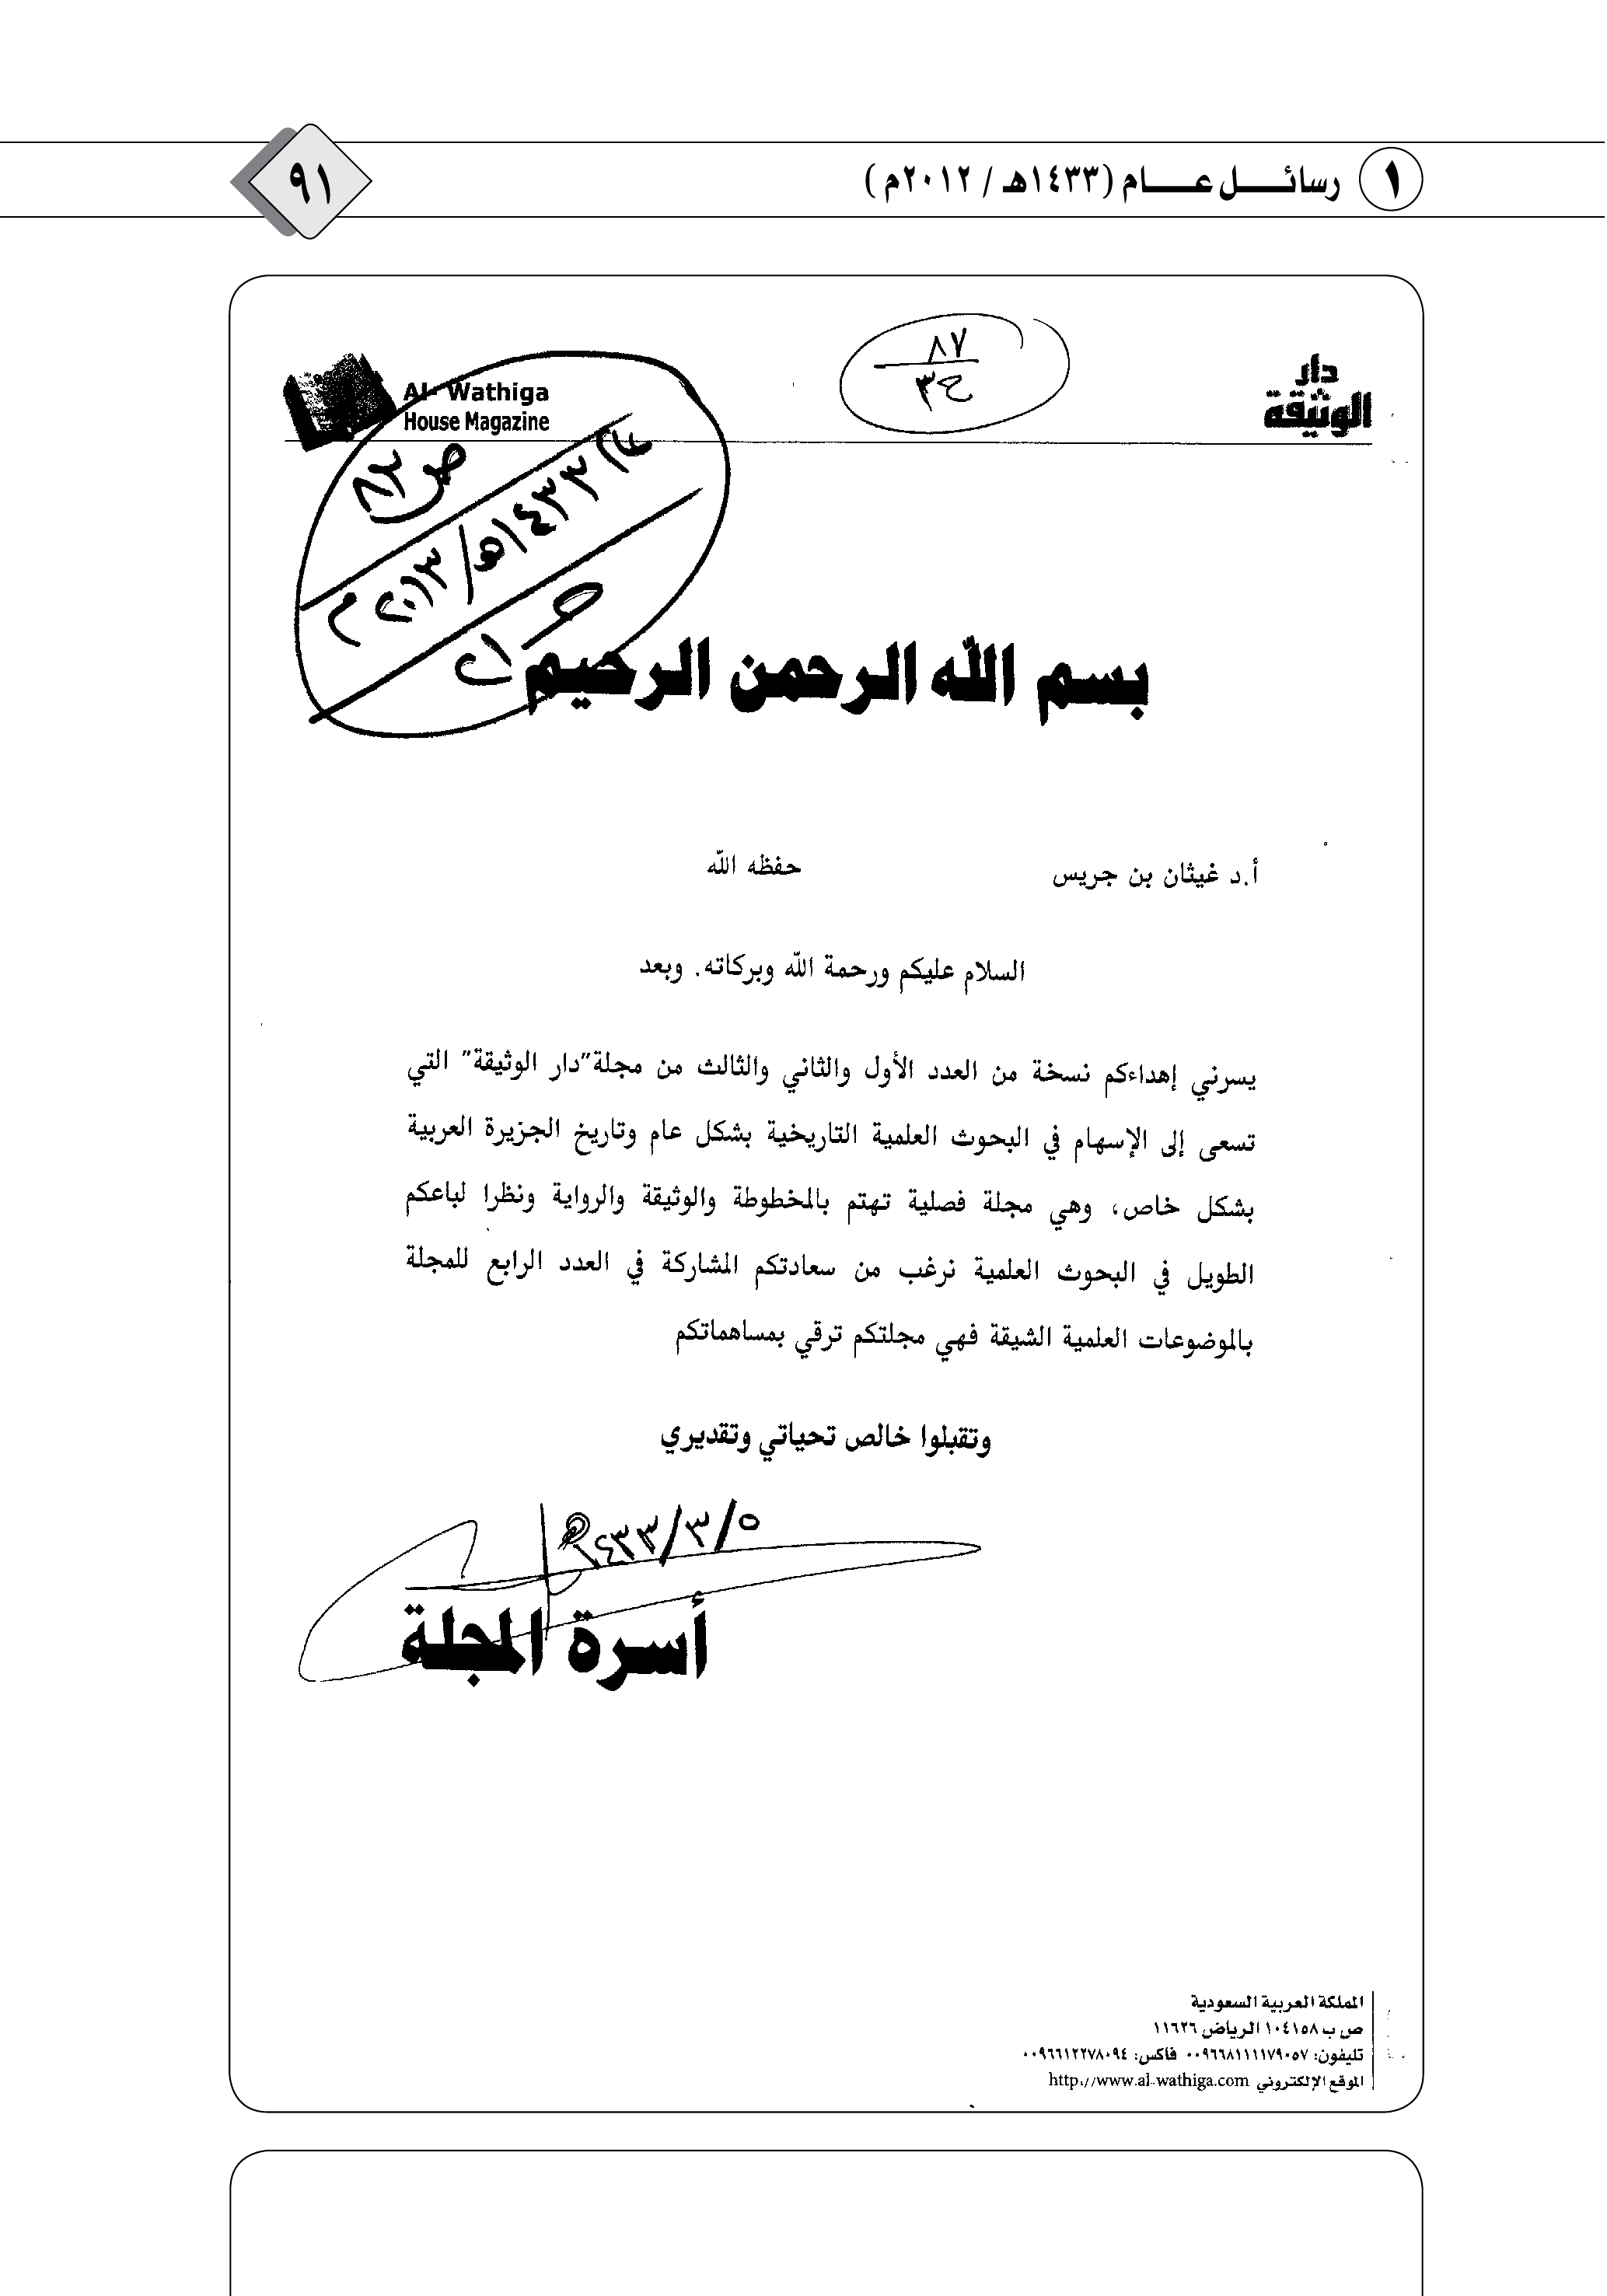 ١ رسائل عام (١٤٣٣هـ / ٢٠١٢م)
٩١
دار
الوثيقة
٨٧
ج٣
Al- Wathiga
House Magazine
ص ٨٢
١٤٣٣هـ/٢٠١٣م
بسم الله الرحمن الرحيم
أ.د غيثان بن جريس حفظه الله
السلام عليكم ورحمة الله وبركاته. وبعد
يسرني إهداءكم نسخة من العدد الأول والثاني والثالث من مجلة"دار الوثيقة" التي
تسعى إلى الإسهام في البحوث العلمية التاريخية بشكل عام وتاريخ الجزيرة العربية
بشكل خاص، وهي مجلة فصلية تهتم بالمخطوطة والوثيقة والرواية ونظرا لباعكم
الطويل في البحوث العلمية نرغب من سعادتكم المشاركة في العدد الرابع للمجلة
بالموضوعات العلمية الشيقة فهي مجلتكم ترقي بمساهماتكم
وتقبلوا خالص تحياتي وتقديري
٥/٣/١٤٣٣هـ
أسرة المجلة
المملكة العربية السعودية
ص ب ١٠٤١٥٨ الرياض ١١٦٢٦
تليفون: ٠٠٩٦٦٨١١١١٧٩٠٥٧ فاكس: ٠٠٩٦٦١٢٢٧٨٠٩٤
الموقع الإلكتروني http://www.al-wathiga.com